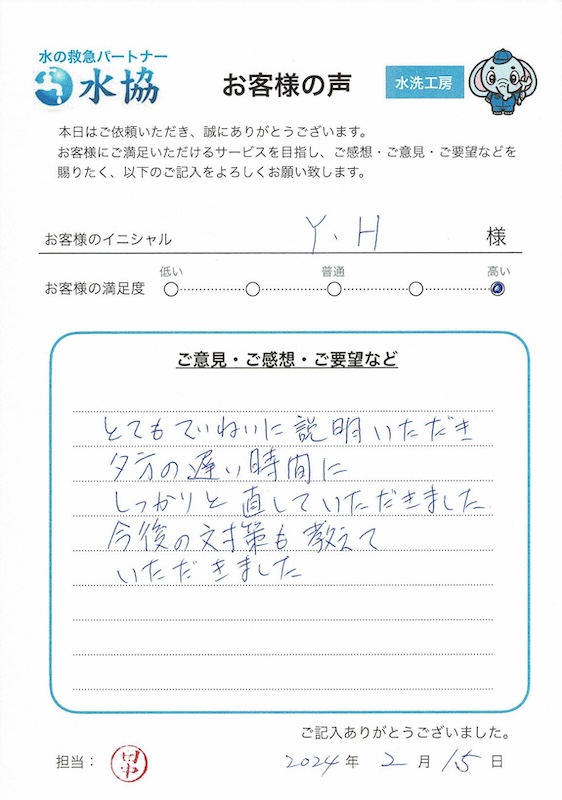 水の救急パートナー
水協
お客様の声
水洗工房
本日はご依頼いただき、誠にありがとうございます。
お客様にご満足いただけるサービスを目指し、ご感想・ご意見・ご要望などを
賜りたく、以下のご記入をよろしくお願い致します。
お客様のイニシャル Y、H 様
低い 普通 高い
お客様の満足度
ご意見・ご感想・ご要望など
とてもていねいに説明いただき
夕方の遅い時間に
しっかりと直していただきました
今後の対策も教えて
いただきました
ご記入ありがとうございました。
担当： 田中 2024年 2月 15日